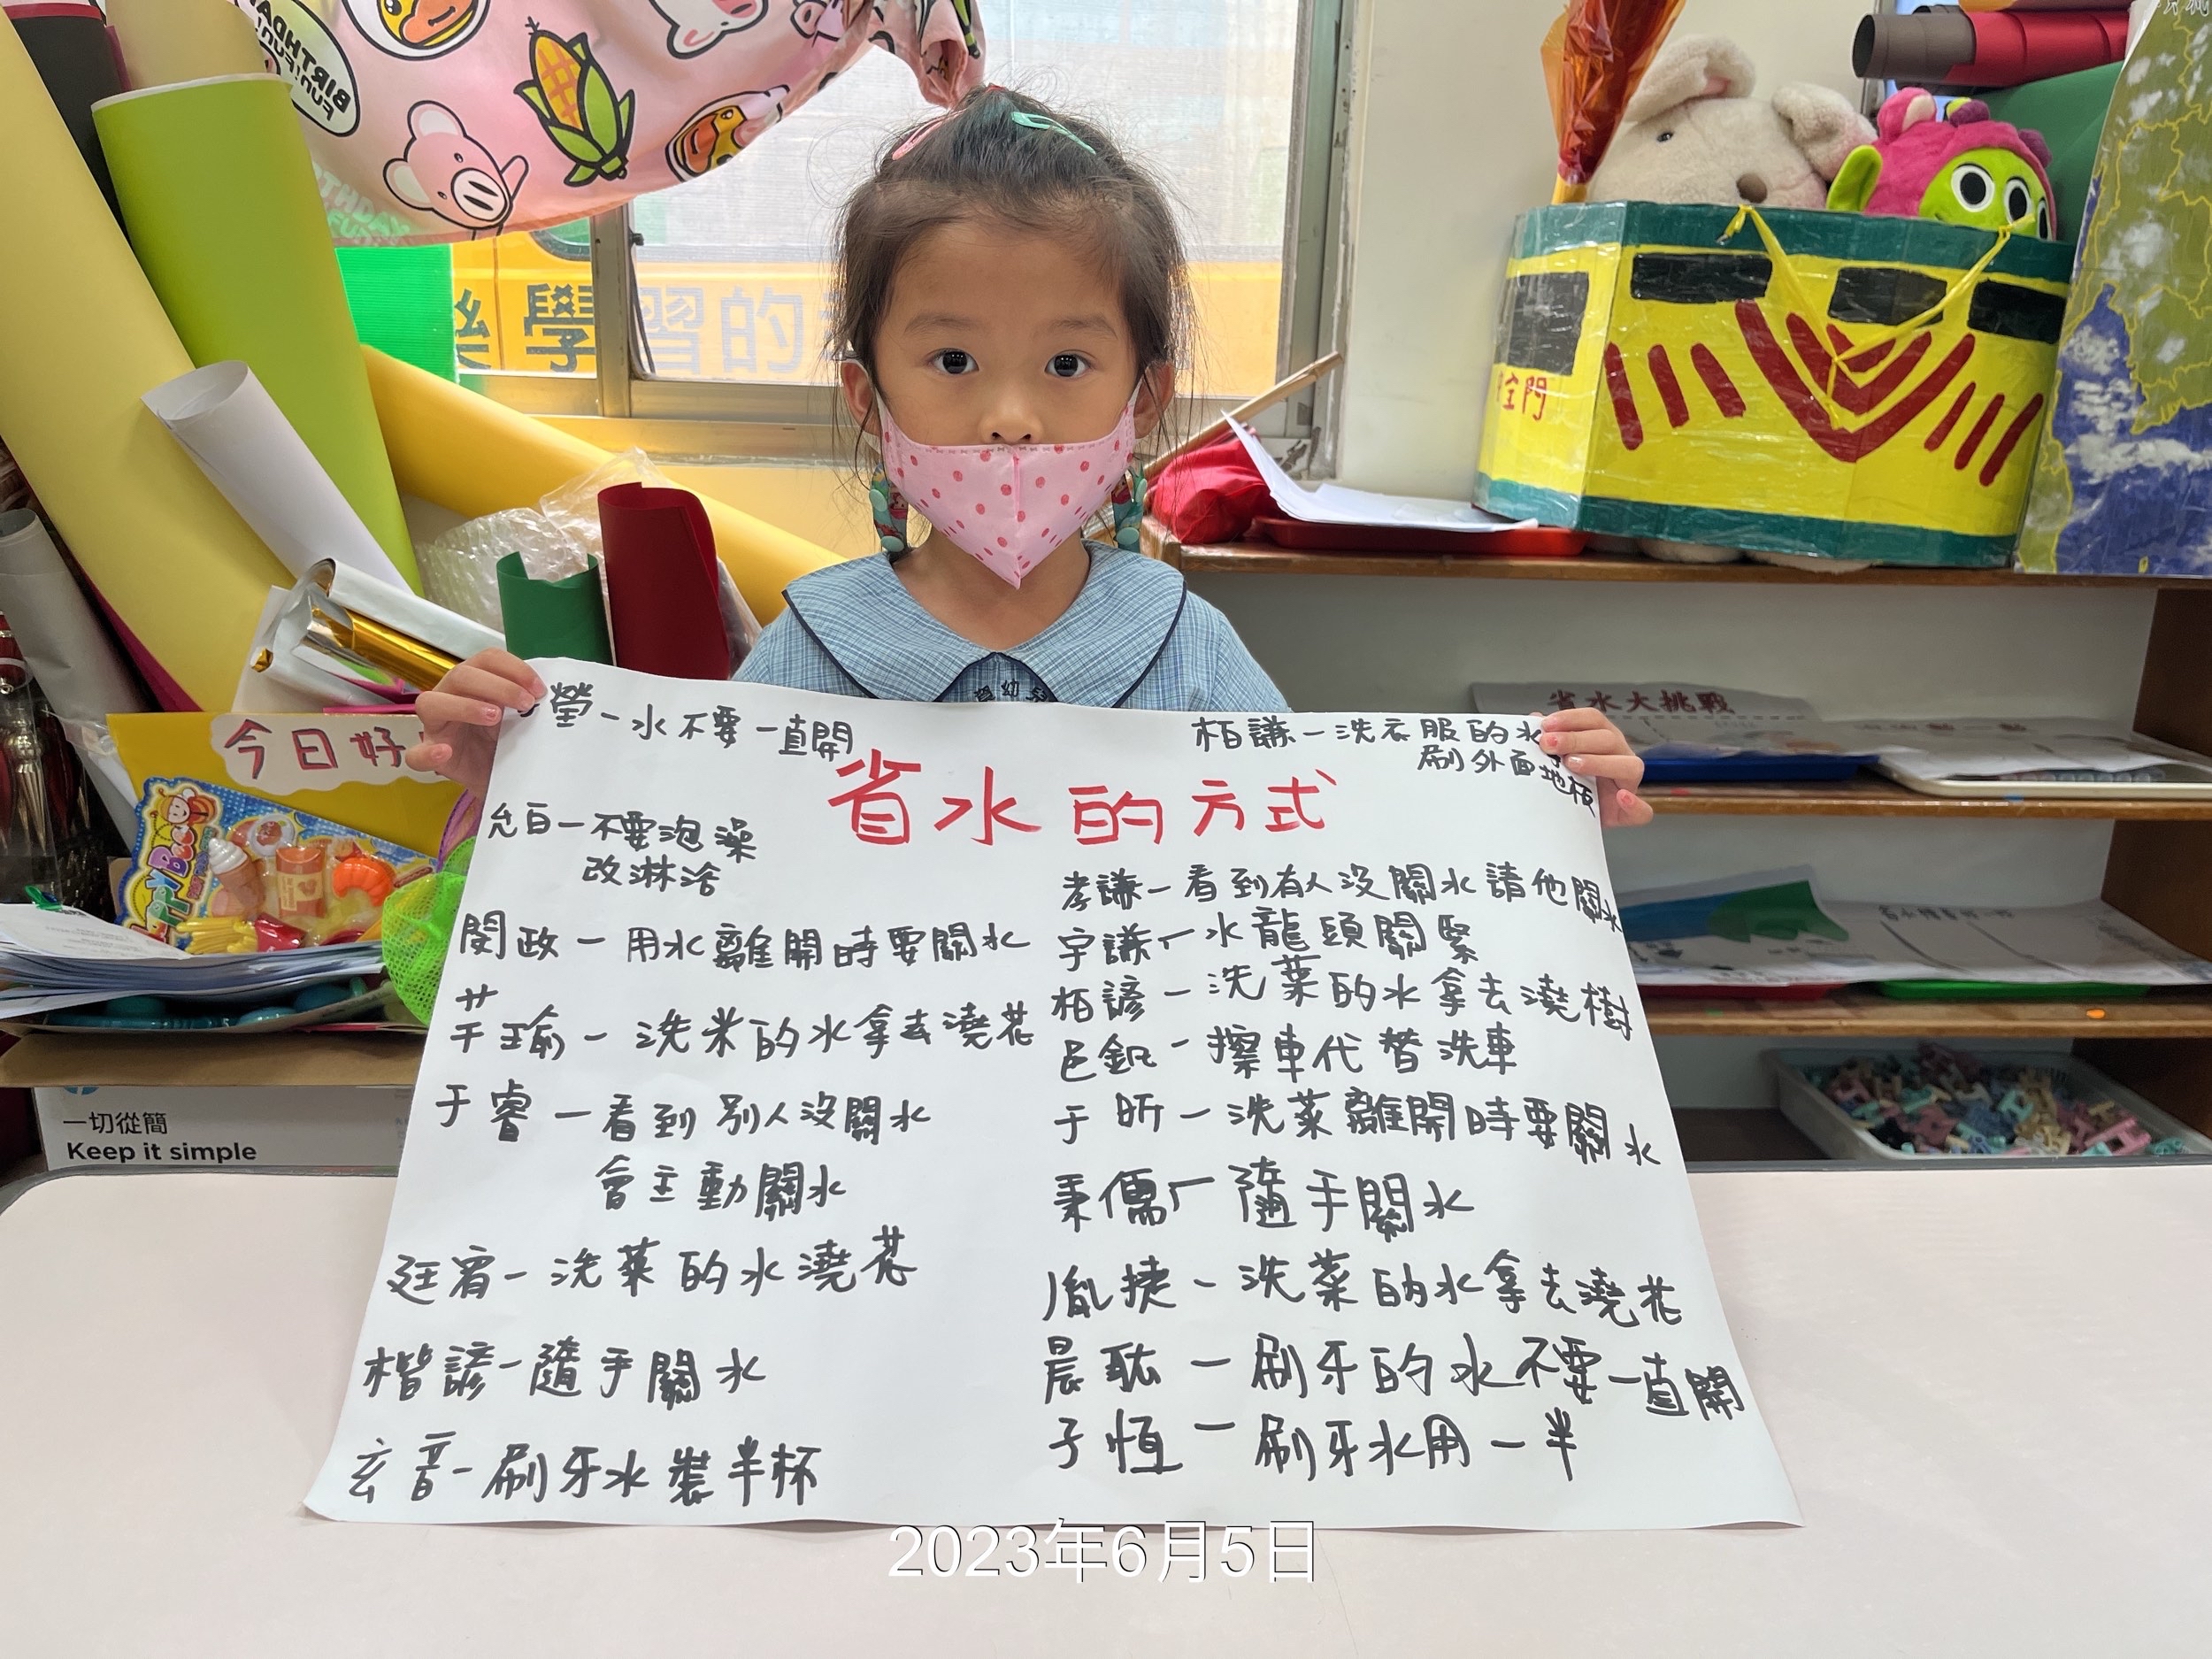 BIRTHDAY
樂學習的
全門
省水大挑戰
今日好
一切從簡
Keep it simple
瑩-水不要一直開
柏謙-洗衣服的水
刷外面地板
省水的方式
允百-不要泡澡
改淋浴
閔政-用水離開時要關水
芊瑜-洗米的水拿去澆花
于睿-看到別人沒關水
會主動關水
廷宥-洗菜的水澆花
楷諺-隨手關水
玄音-刷牙水裝半杯
孝謙-看到有人沒關水請他關水
宇謙-水龍頭關緊
柏諺-洗菜的水拿去澆樹
邑釩-擦車代替洗車
于昕-洗菜離開時要關水
秉儒-隨手關水
胤捷-洗菜的水拿去澆花
晨耘-刷牙的水不要一直開
子恆-刷牙水用一半
2023年6月5日